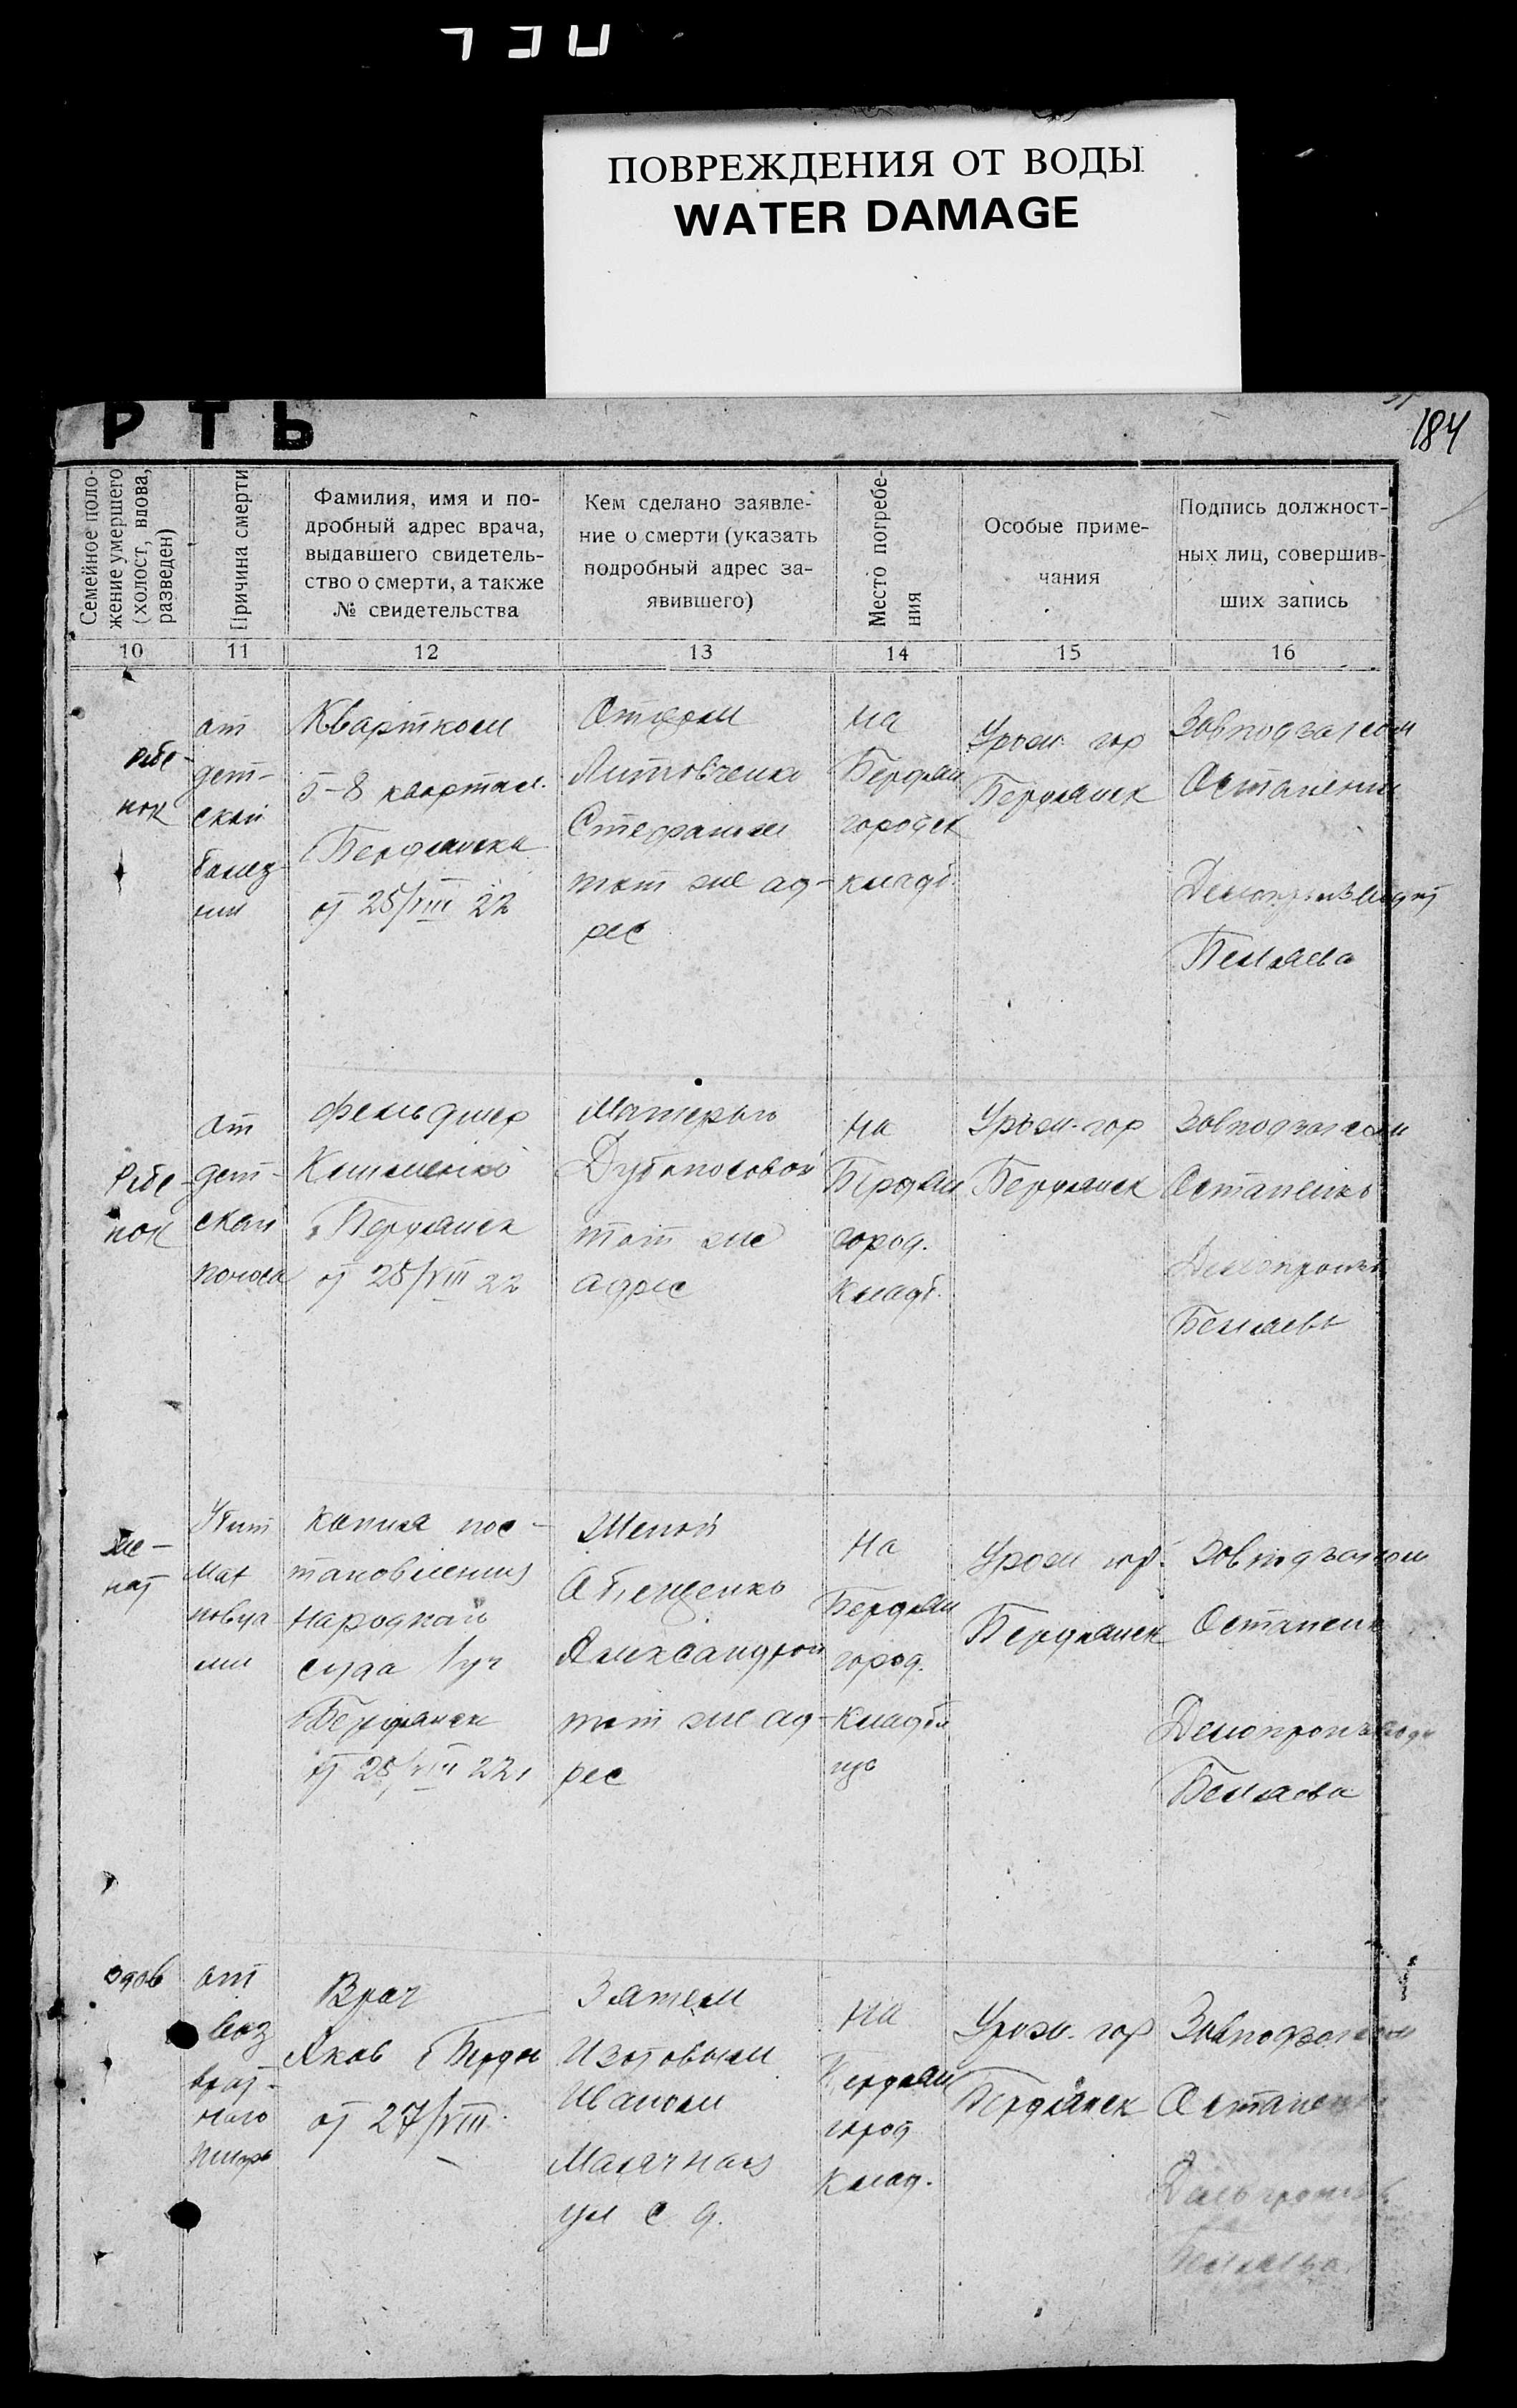 ПОВРЕЖДЕНИЯ ОТ ВОДЫ
WATER DAMAGE
184
РТЬ
Семейное поло-
жение умершего
(холост, вдова,
разведен)
Причина смерти
Фамилия, имя и по-
дробный адрес врача,
выдавшего свидетель-
ство о смерти, а также
№ свидетельства
Кем сделано заявле-
ние о смерти (указать
подробный адрес за-
явившего)
Место погребе-
ния
Особые приме-
чания
Подпись должност-
ных лиц, совершив-
ших запись
10 11 12 13 14 15 16
ребе-
нок
от
дет-
ской
болез-
ни
Квартком
5-8 квартал.
Бердянска
от 25/VIII 22
Отцом
Литовченко
Стефаном
тот же ад-
рес
на
Бердян
городск
кладб.
Урож. гор
Бердянск
Завподзагсом
Остапенко
Делопроизводит
Беляева
Ребе-
нок
От
дет-
ском
поноса
Фельдшер
Бердянск
от 25/VIII 22
Матерью
тот же
адрес
на
Бердян
город.
кладб.
Урож. гор
Бердянск
Завподзагсом
Остапенко
Беляева
же-
нат
Убит
мах
новца
ми
копия пос-
тановления
Народного
суда 1 уч
Бердянск
от 25/VIII 22
Женой
Александрой
тот же ад-
рес
На
Бердян
город.
Кладби
ще
Урож гор.
Бердянск
Завподзагсом
Остапенко
Делопроизвод
Беляева
вдов
от
воз
врат-
ного
тифа
Врач
Яков г Бердян
от 27/VIII
Зятем
Изотовым
Иваном
ул с д.
на
Бердян
город
клад.
Урож. гор
Бердянск
Завподзагсом
Остапенко
Беляева